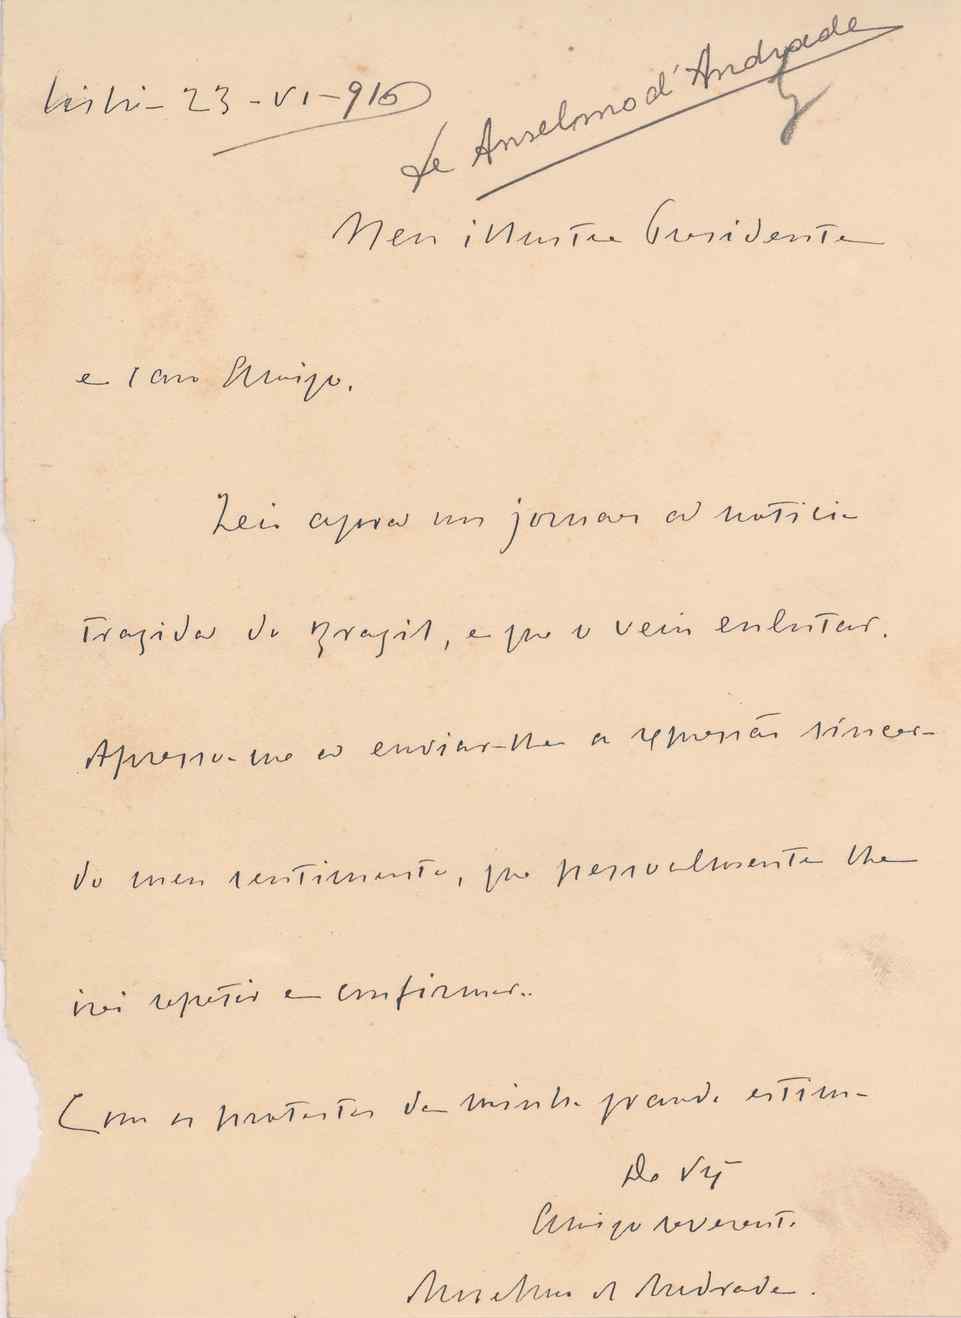 Lisbª - 23 - VI - 916
de Anselmo d'Andrade
Meu illustre Presidente
e caro Amigo.
Leio agora nos jornaes a noticia
trazida do Brazil, e que o veiu enlutar.
Apresso-me a enviar-lhe a expressão sincera
do meu sentimento, que pessoalmente lhe
irei repetir e confirmar.
Com os protestos da minha grande estima
De V.
Amigo reverente
Anselmo d Andrade.